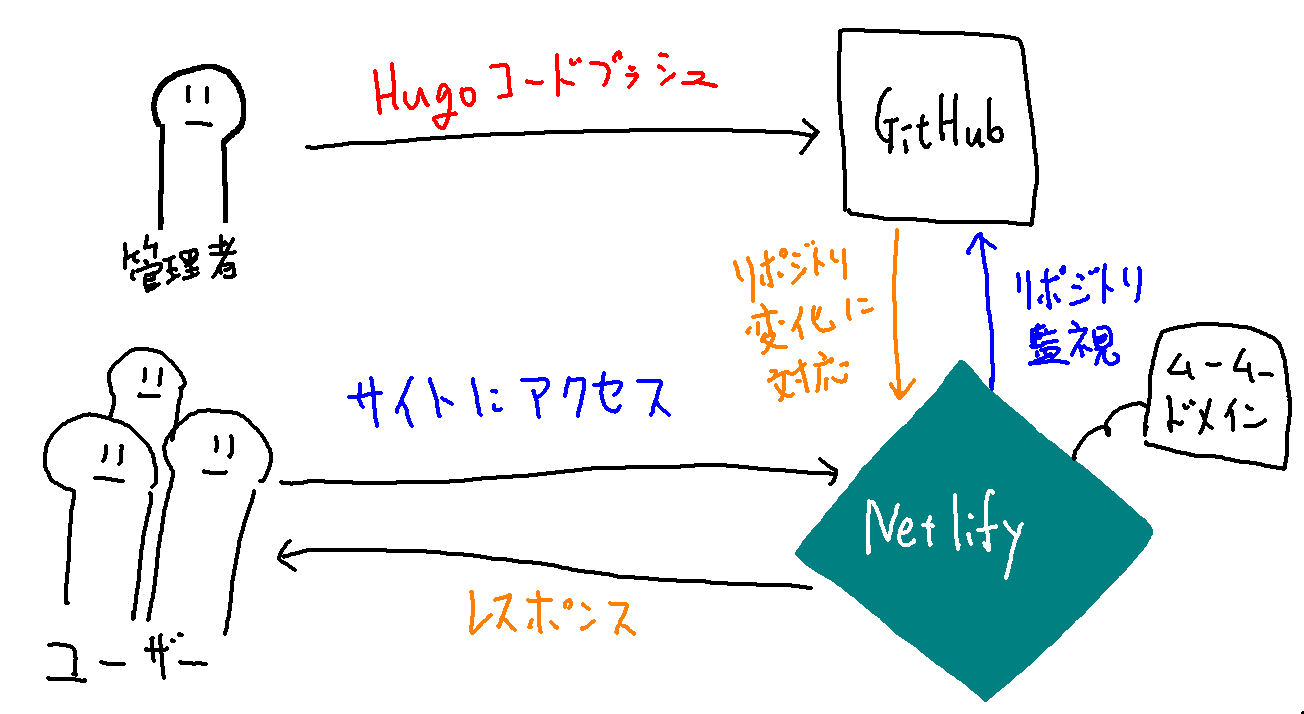 Hugoコードプッシュ
GitHub
管理者
リポジトリ
変化に
対応
リポジトリ
監視
ムームー
ドメイン
サイトにアクセス
Netlify
レスポンス
ユーザー